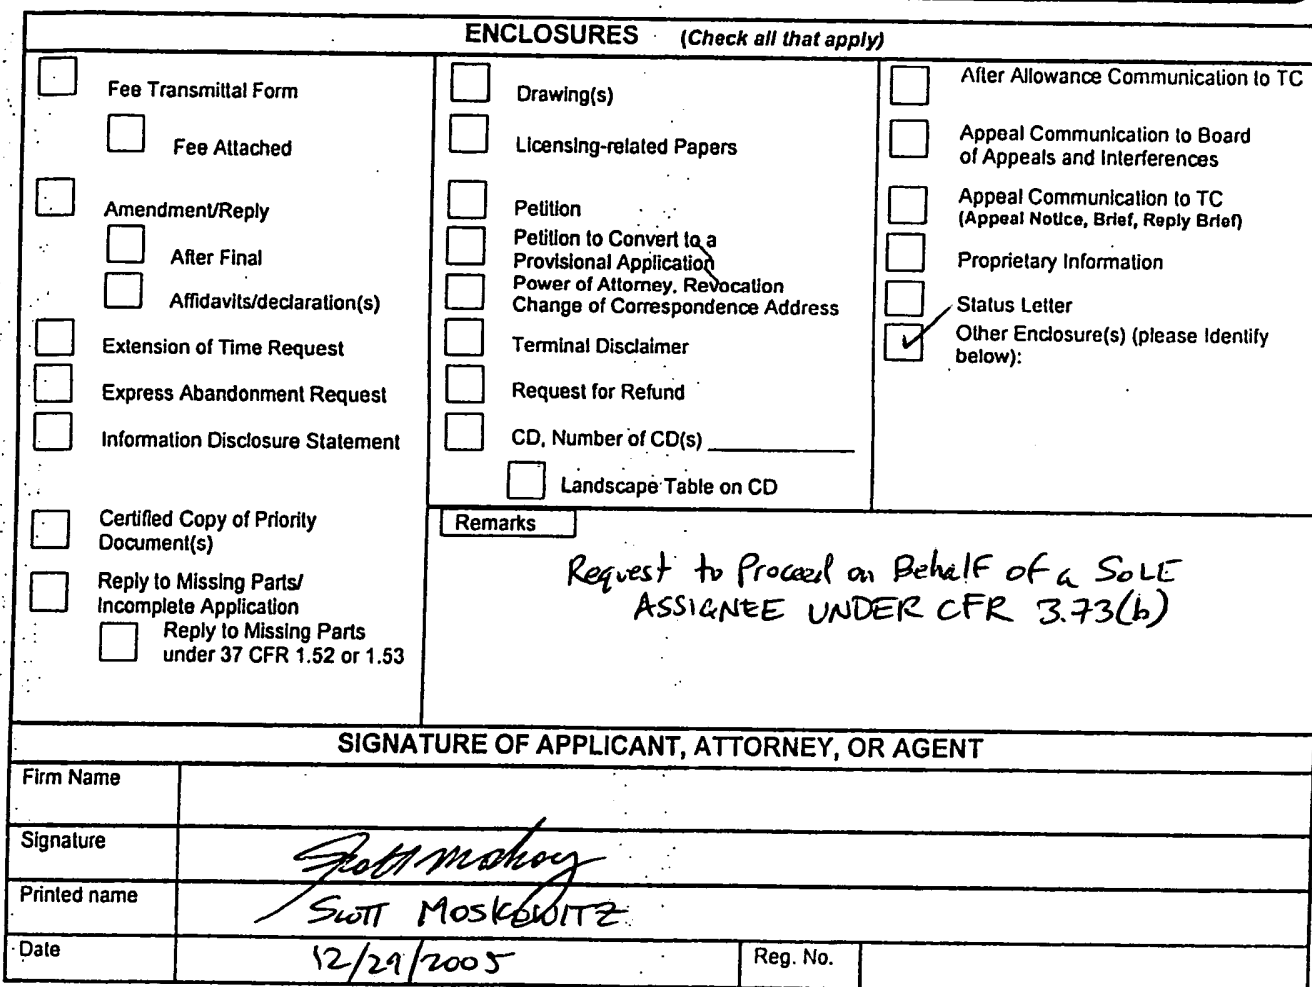 ENCLOSURES (Check all that apply)
Fee Transmittal Form
Fee Attached
Amendment/Reply
After Final
Affidavits/declaration(s)
Extension of Time Request
Express Abandonment Request
Information Disclosure Statement
Certified Copy of Priority
Document(s)
Reply to Missing Parts/
Incomplete Application
Reply to Missing Parts
under 37 CFR 1.52 or 1.53
Drawing(s)
Licensing-related Papers
Petition
Petition to Convert to a
Provisional Application
Power of Attorney, Revocation
Change of Correspondence Address
Terminal Disclaimer
Request for Refund
CD, Number of CD(s)
Landscape Table on CD
After Allowance Communication to TC
Appeal Communication to Board
of Appeals and Interferences
Appeal Communication to TC
(Appeal Notice, Brief, Reply Brief)
Proprietary Information
Status Letter
Other Enclosure(s) (please Identify
below):
Remarks
Request to Proceed on Behalf of a SOLE
ASSIGNEE UNDER CFR 3.73(b)
SIGNATURE OF APPLICANT, ATTORNEY, OR AGENT
Firm Name
Signature
Printed name SCOTT MOSKOWITZ
Date 12/29/2005 Reg. No.